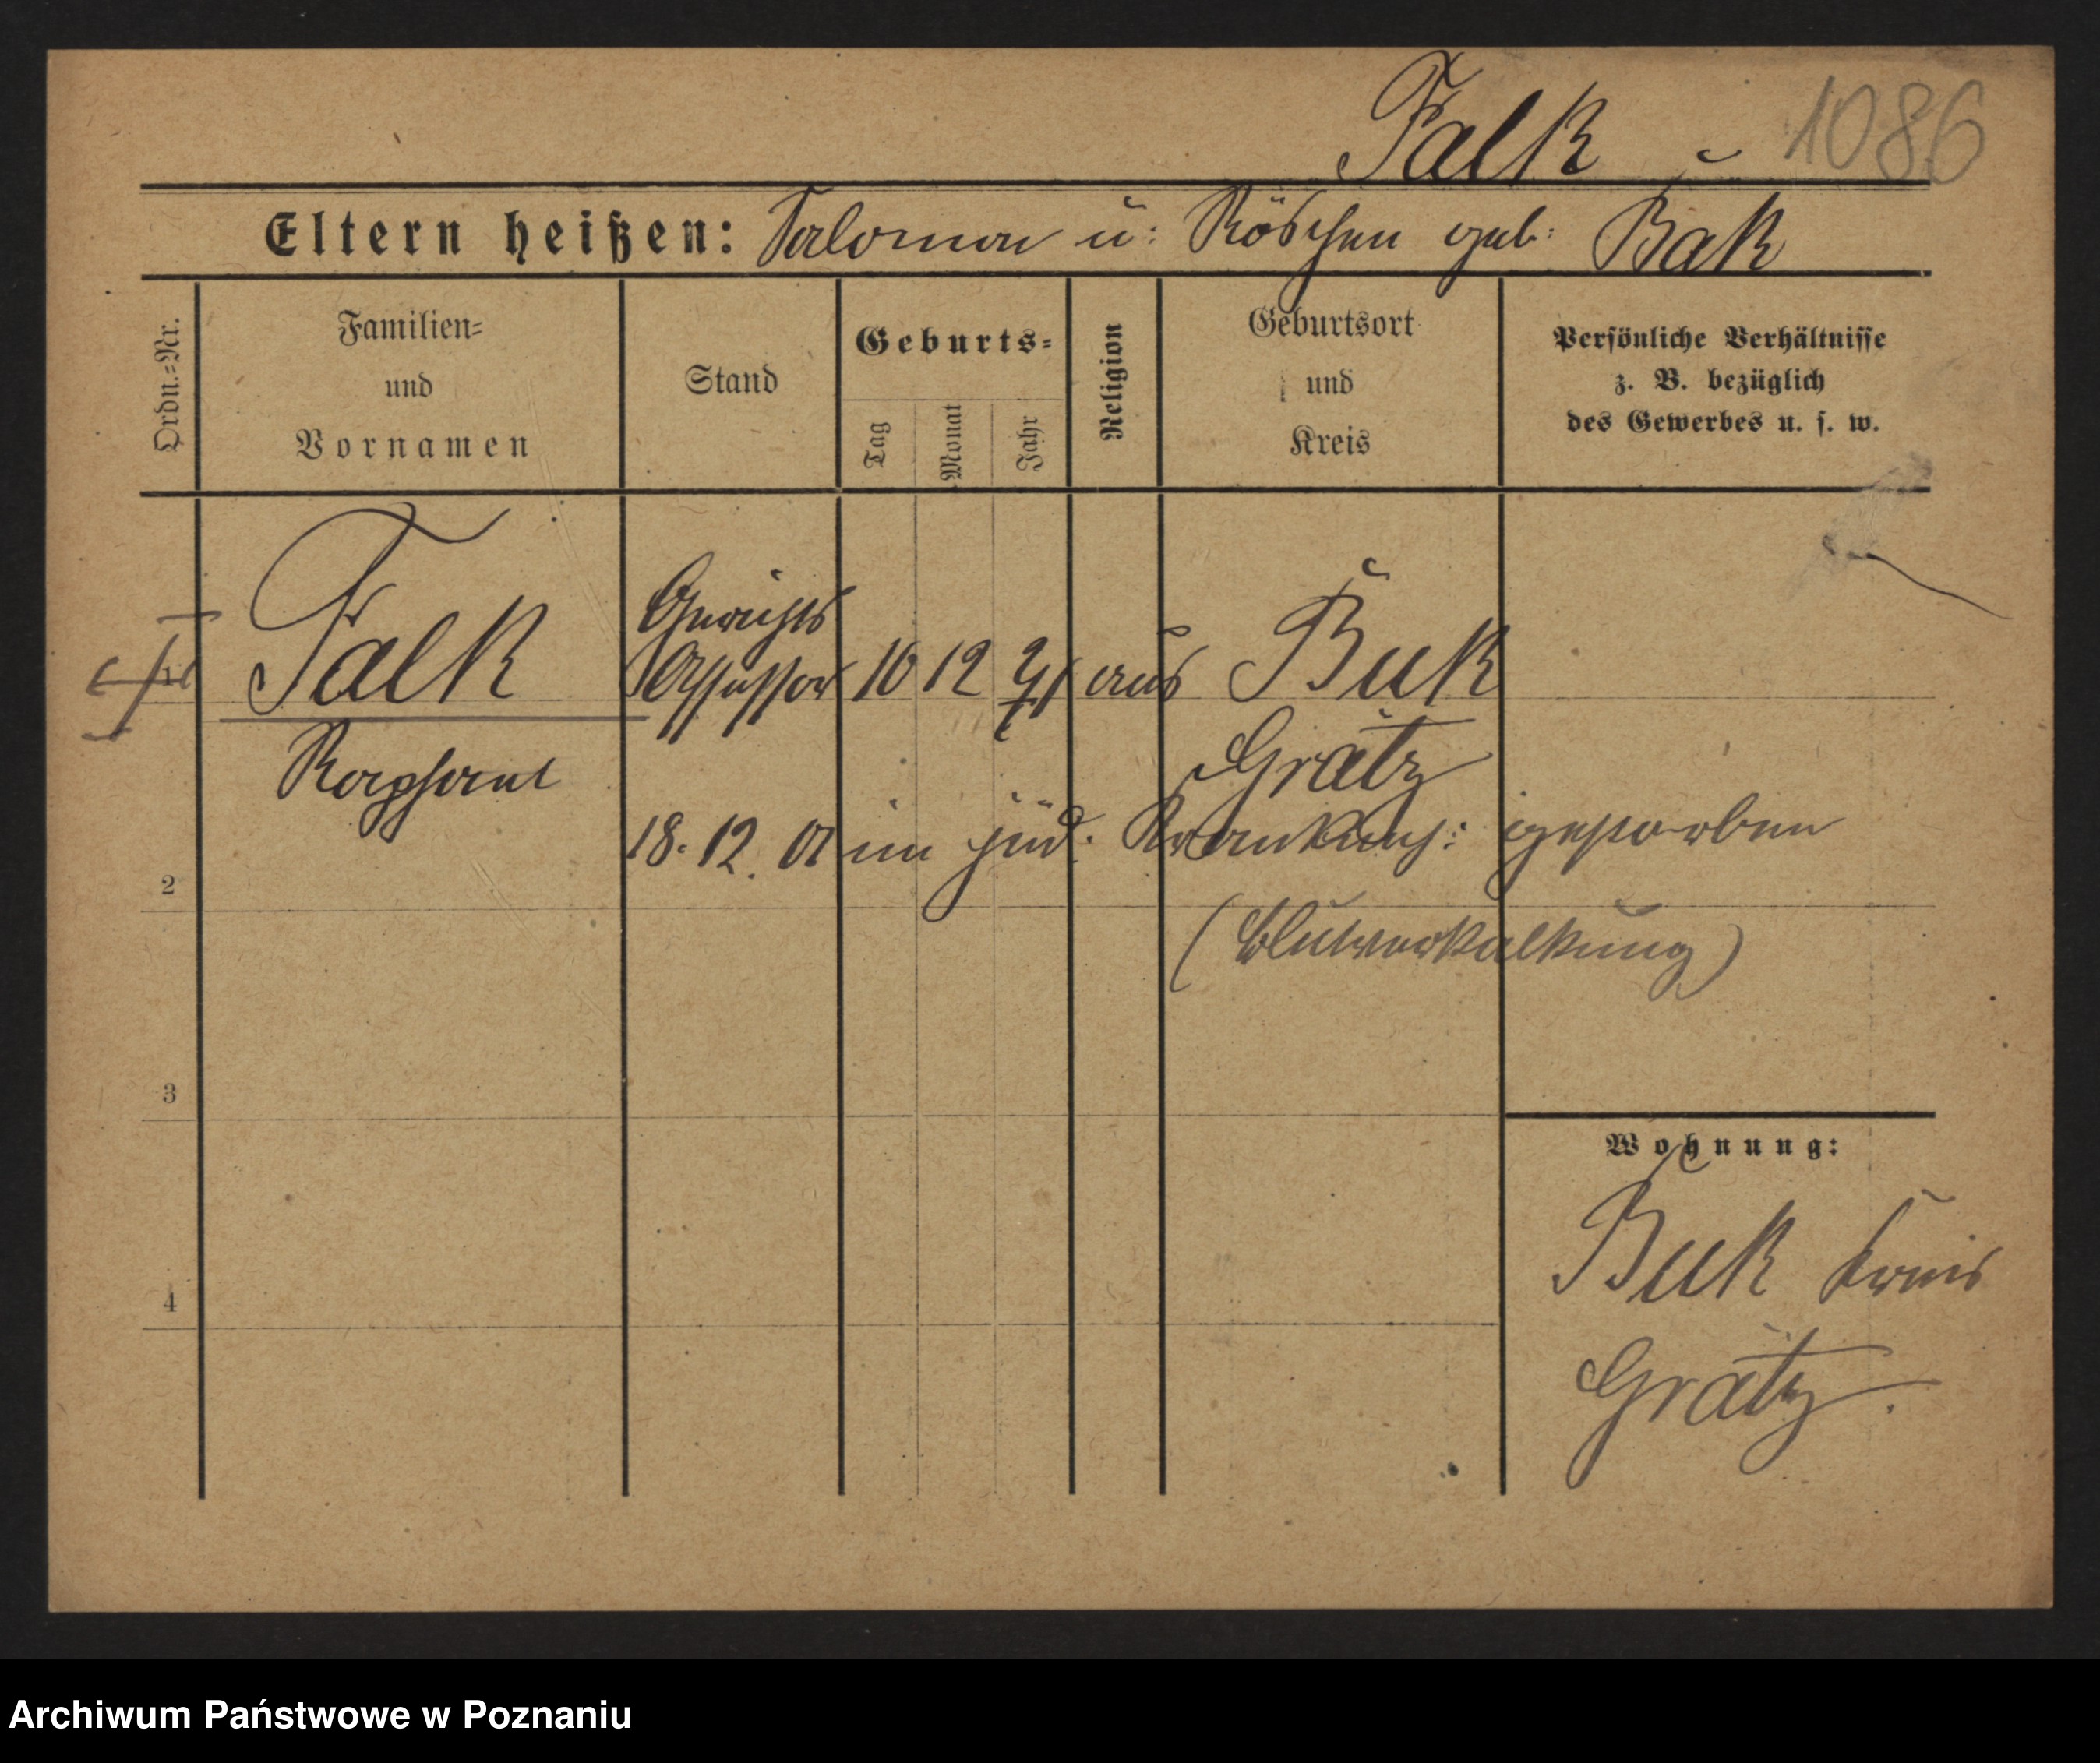 Falk 1086
Eltern heißen: Salomon u: Röschen geb: Bak
Ordn.-Nr.
Familien- und Vornamen
Stand
Geburts-
Tag Monat Jahr
Religion
Geburtsort und Kreis
Persönliche Verhältnisse
z. B. bezüglich
des Gewerbes u. s. w.
1
Falk Gerichts
Assessor 10 12 71 aus Buk
Raphael Grätz
18. 12. 01 im jüd: Krankenh: gestorben
2
(Blutverkalkung)
3
Wohnung:
Buk Kreis
4
Grätz.
Archiwum Państwowe w Poznaniu